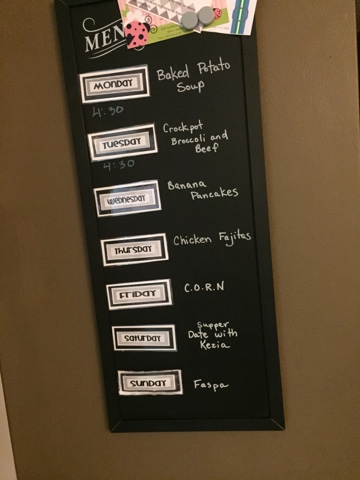 MEN
MONDAY
Baked Potato
Soup
4:30
TUESDAY
Crockpot
Broccoli and
Beef
4:30
WEDNESDAY
Banana
Pancakes
THURSDAY
Chicken Fajitas
FRIDAY
C.O.R.N
SATURDAY
Supper
Date with
Kezia
SUNDAY
Faspa